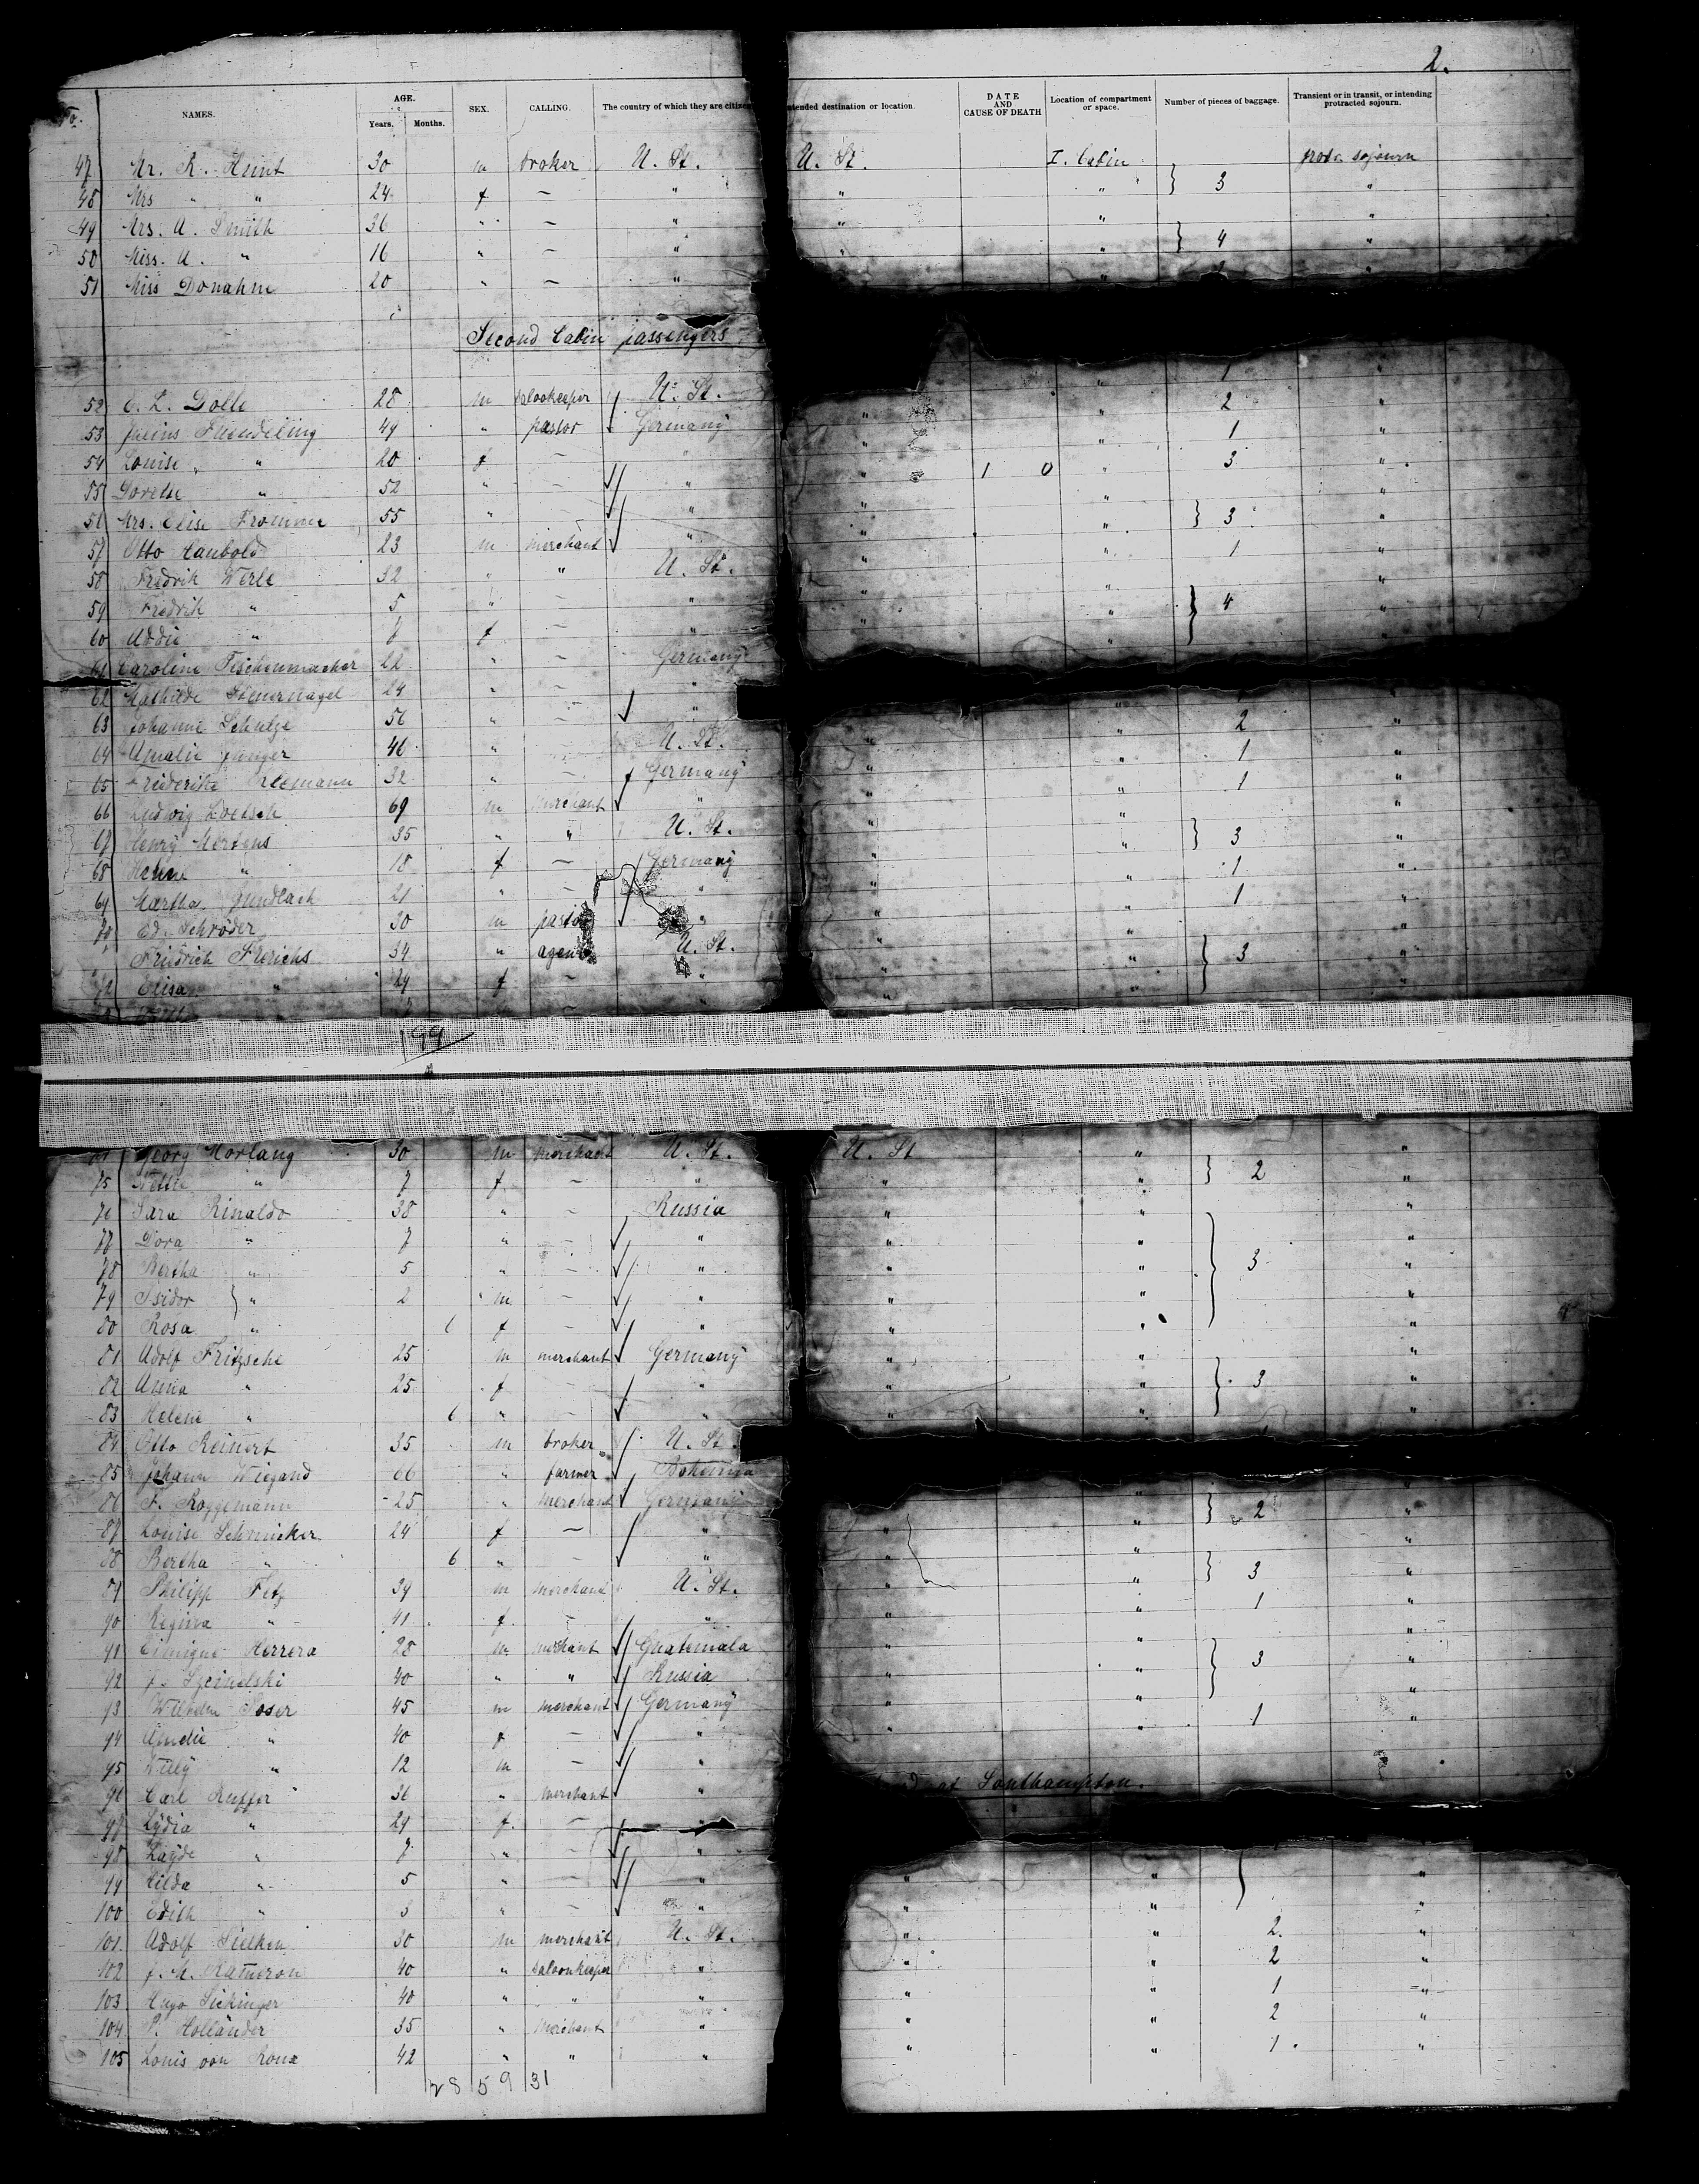 2.
No. NAMES. AGE. Years. Months. SEX. CALLING. The country of which they are citizens Intended destination or location. DATE AND CAUSE OF DEATH Location of compartment or space. Number of pieces of baggage. Transient or in transit, or intending protracted sojourn.
47 Mr. R. Hunt 30 m broker U. St. U. St. I. Cabin sojourn
48 Mrs " " 24 f — " " " } 3 "
49 Mrs. A. Smith 36 " — " " " "
50 Miss. A. " 16 " — " " " } 4 "
51 Miss Donahue 20 " — " " "
Second Cabin passengers
52 C. L. Dolle 28 m U. St. 1
53 49 " pastor Germany " " 2 "
54 Louise " 20 f — " " " 1 "
55 " 52 " — " " 1 0 " 3 "
56 Mrs. Elise Fromme 55 " — " " " "
57 Otto Haubold 23 m merchant " " " } 3 "
58 Fredrik Werle 32 " " U. St. " " 1 "
59 Fredrik " 5 " — " " " "
60 Addie " 7 f — " " " } 4 "
61 Caroline Tischenmacher 22 " — Germany "
62 Mathilde Steuernagel 24 " — "
63 Johanne Schulze 56 " — " " " 2 "
64 Amalie Junger 46 " — U. St. " " 1 "
65 32 " — Germany " " 1 "
66 Ludwig Loetsch 69 m merchant " " " "
67 Henry Mertens 35 " " U. St. " " } 3 "
68 " 18 f — Germany " " 1 "
69 Martha Gundlach 21 " — " " " 1 "
70 Ed. Schröder 30 m pastor " " " "
Friedrich Frerichs 34 " agent U. St. " " } 3 "
72 Elisa " 29 f — " " "
199
Georg Morlang 30 m merchant U. St. U. St " "
75 Nettie " 7 f — " " " } 2 "
76 Sara Rinaldo 38 " — Russia " " "
77 Dora " 7 " — " " " "
78 Bertha " 5 " — " " " } 3 "
79 Isidor } " 2 m — " " " "
80 Rosa " 6 f — " " " "
81 Adolf Fritzsche 25 m merchant Germany " " "
82 Anna " 25 f — " " " } 3 "
83 Helene " 6 " — " " " "
84 Otto Reinert 35 m broker U. St.
85 Johann Wiegand 66 " farmer Bohemia
86 F. Roggemann 25 " merchant Germany " } 2 "
87 Louise Schmicker 24 f — " " " "
88 Bertha " 6 " — " " " "
89 Philipp Fetz 39 m merchant U. St. " " } 3 "
90 Regina " 41 f — " " " 1 "
91 Herrera 28 m merchant Guatemala " " "
92 40 " " Russia " " } 3 "
93 Wilhelm 45 m merchant Germany " " "
94 " 40 f — " " " 1 "
95 Willy " 12 m — "
96 Carl 36 " merchant " Southampton.
97 Lydia " 29 f — "
98 " 7 " — "
99 Hilda " 5 " — " " " "
100 Edith " 3 " — " " " "
101 Adolf Sielken 30 m merchant U. St. " " 2 "
102 J. M. 40 " saloonkeeper " " " 2 "
103 Hugo Sickinger 40 " " " " " 1 "
104 P. Holländer 35 " merchant " " " 2 "
105 Louis von 42 " " " " " 1 "
28 59 31